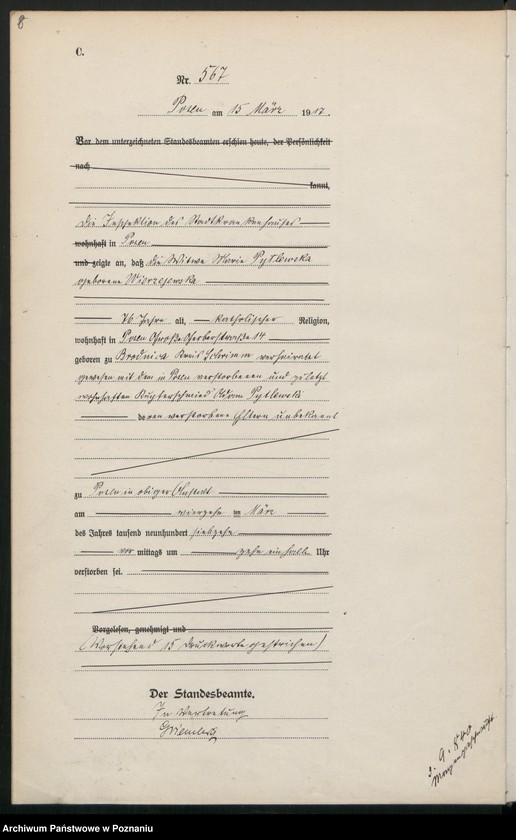 8
C.
Nr. 567
Posen am 15 März 1917.
Vor dem unterzeichneten Standesbeamten erschien heute, der Persönlichkeit
nach
kannt,
die Inspektion des Stadtkrankenhauses
wohnhaft in Posen
und zeigte an, daß die Witwe Marie Pytlewska
geborene Wierzejewska
76 Jahre alt, katholischer Religion,
wohnhaft in Posen Große Gerberstraße 14
geboren zu Brodnica Kreis Schrimm verheiratet
gewesen mit dem in Posen verstorbenen und zuletzt
wohnhaften Kupferschmied Adam Pytlewski
deren verstorbene Eltern unbekannt
zu Posen in obiger Anstalt
am vierzehn im März
des Jahres tausend neunhundert siebzehn
vor mittags um zehn einhalb Uhr
verstorben sei.
Vorgelesen, genehmigt und
(Vorstehend 15 Druckworte gestrichen)
Der Standesbeamte.
In Vertretung